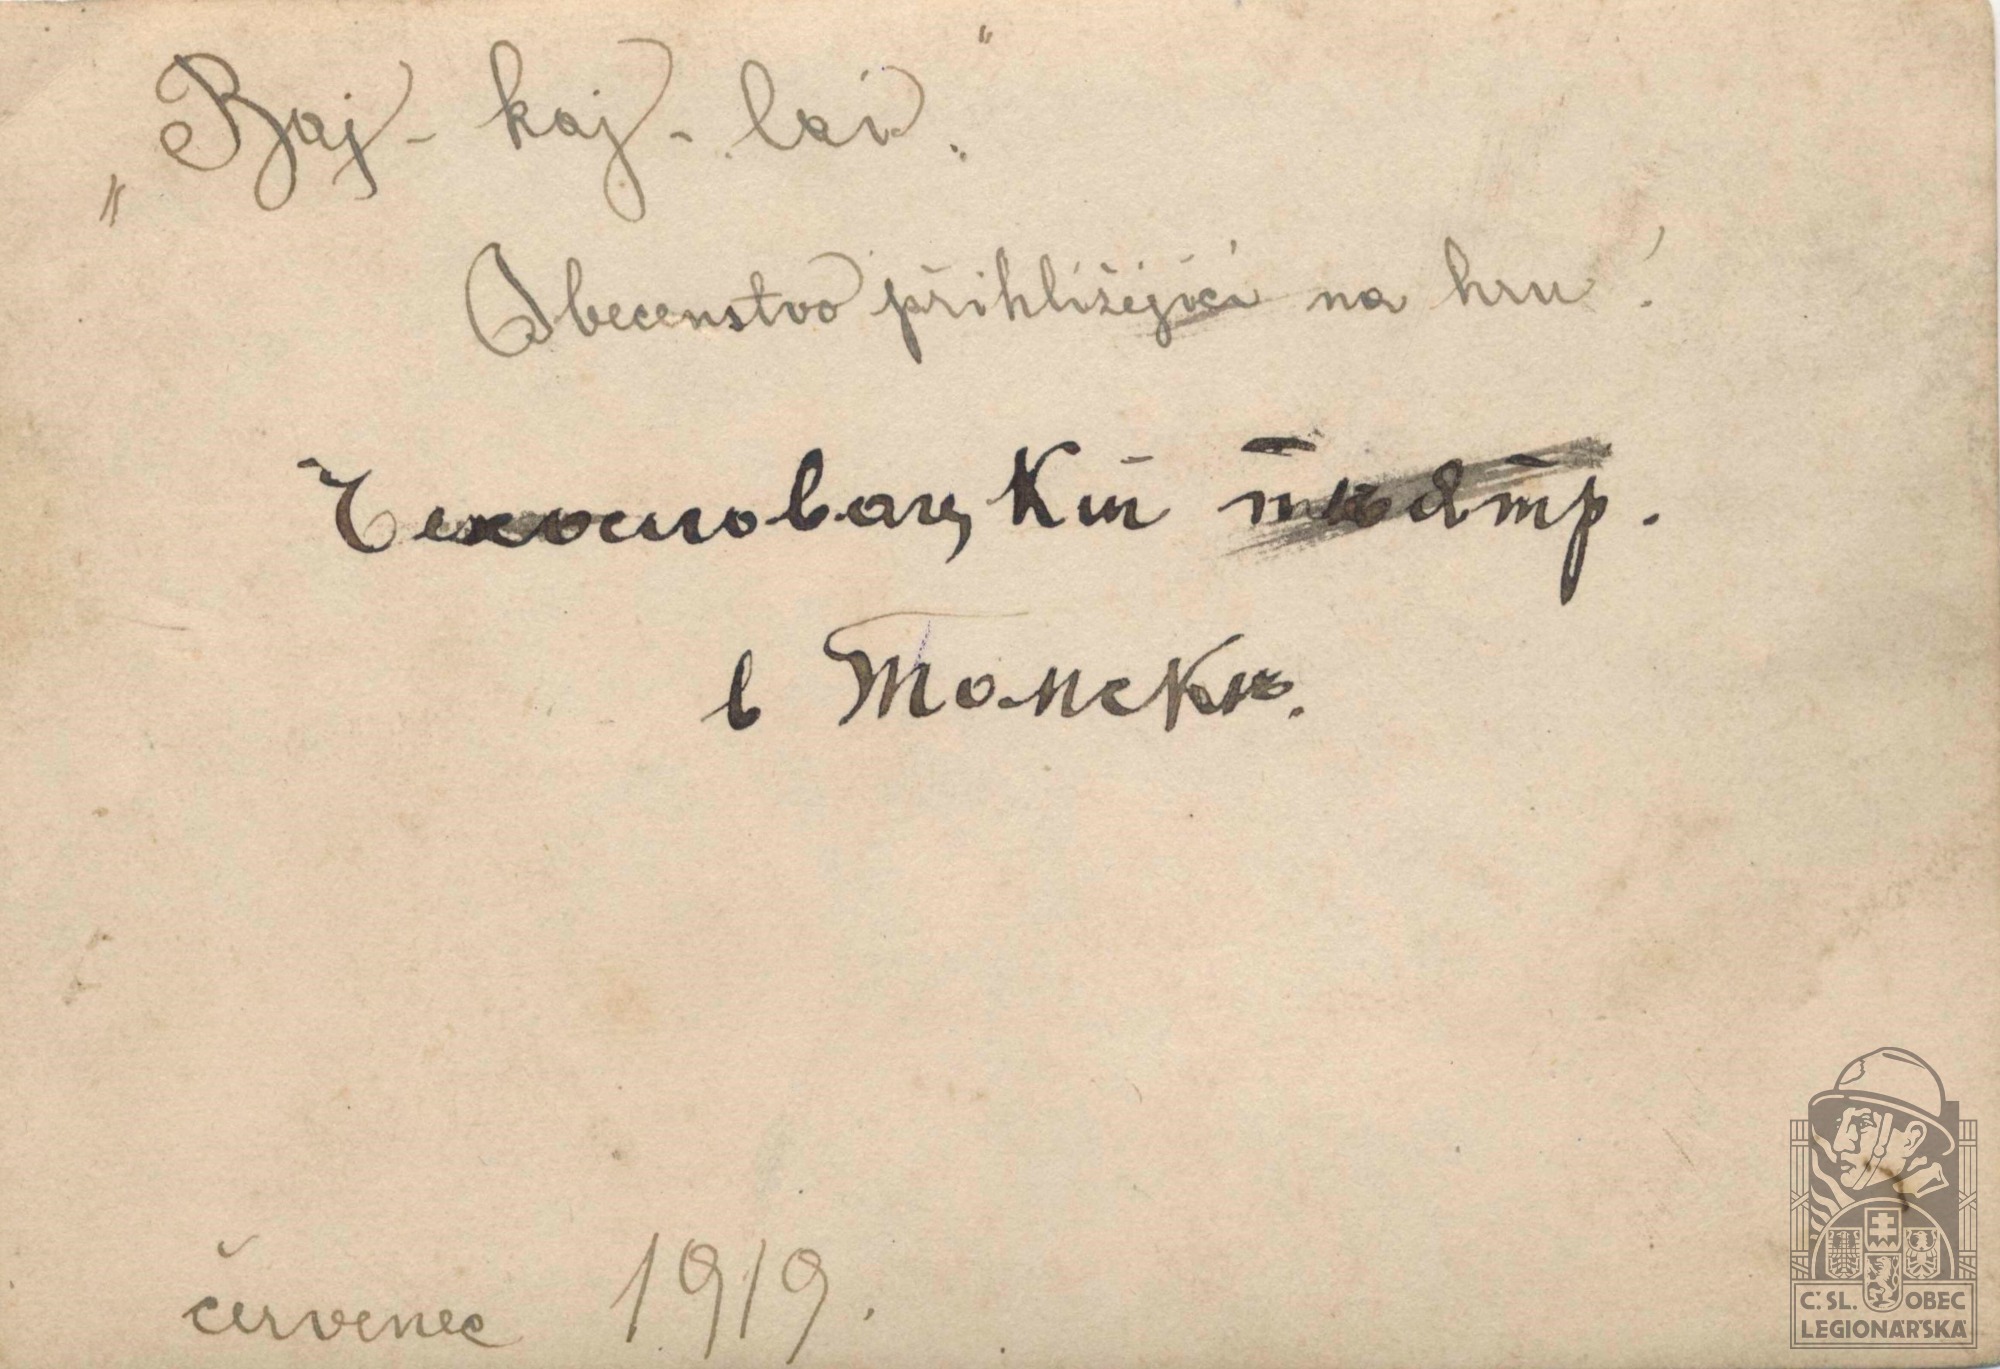 „Baj - kaj - lai."
Obecenstvo přihlížející na hru!
Чехословацкій тѣатр.
в Томскѣ.
červenec 1919.
Č. SL. OBEC
LEGIONÁŘSKÁ